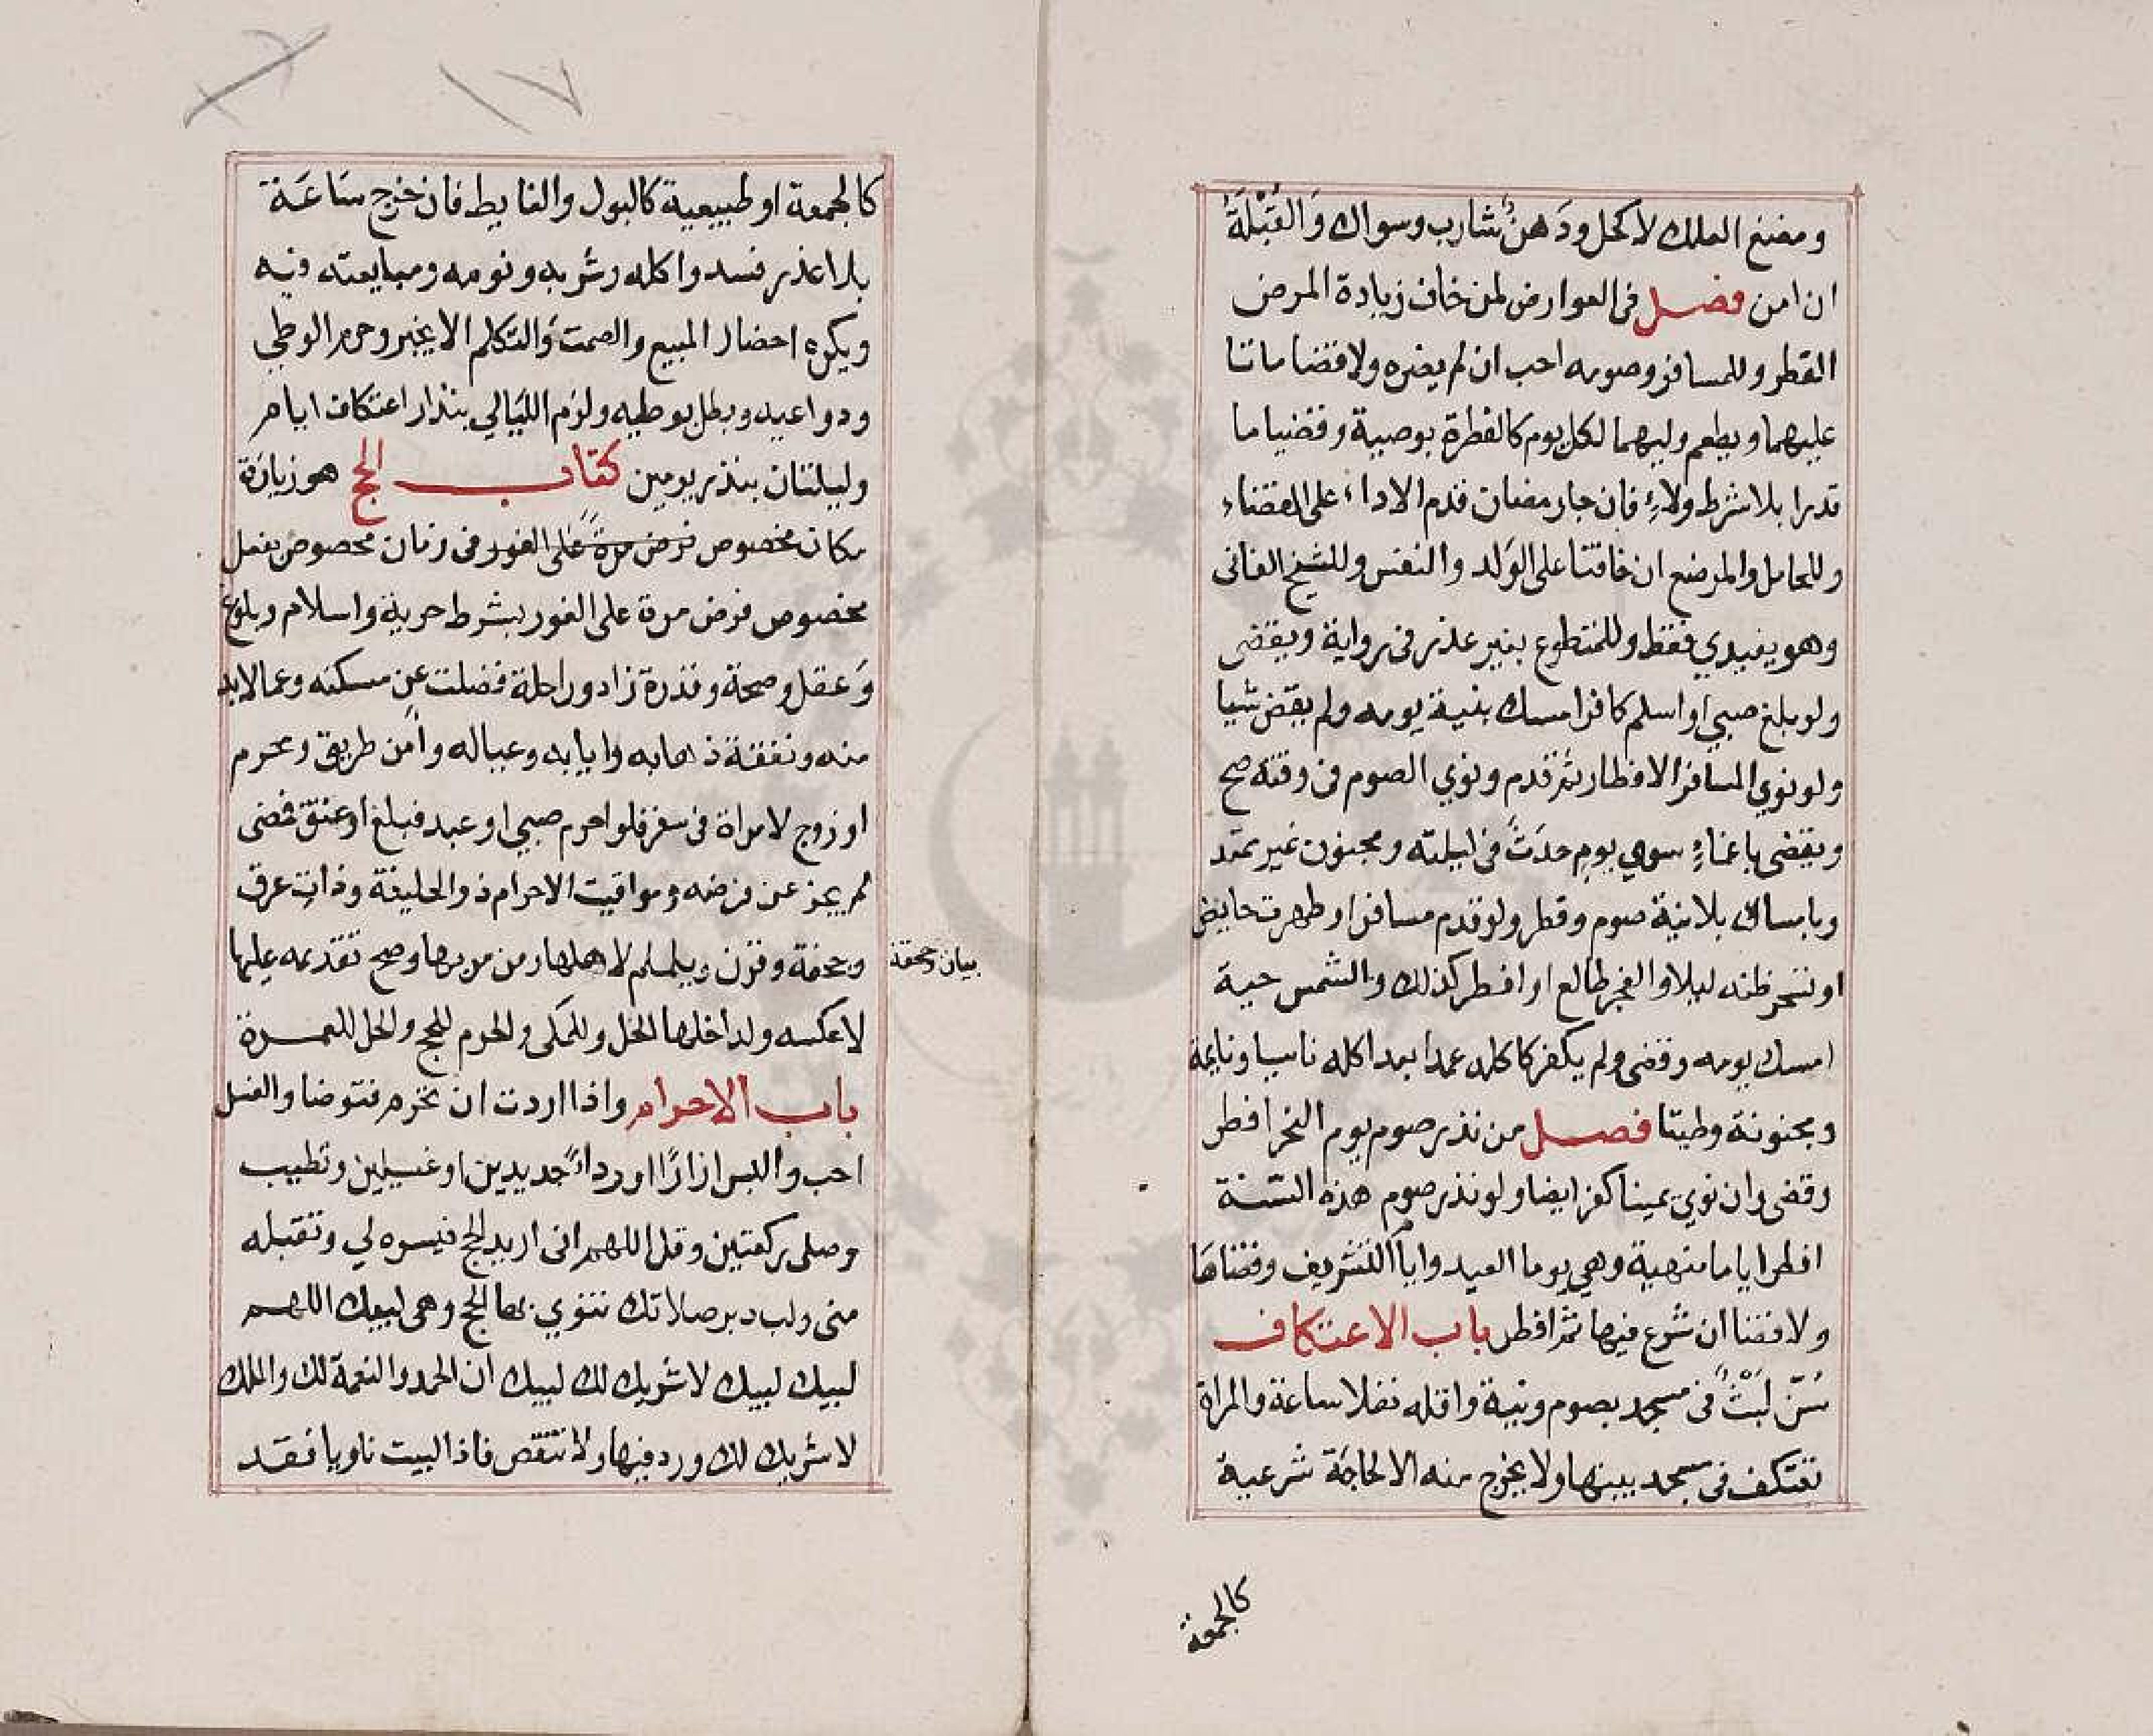 ومضغ العلك لا كحل ودَهنُ شارب وسواك وَالقُبْلَةُ
ان امن فصل فى العوارض لمن خاف زيادة المرض
الفطر وللمسافر وصومه احب ان لم يضره ولا قضا ماتا
عليهما ويطعم وليهما لكل يوم كالفطرة بوصية وقضيا ما
قدرا بلا شرط ولاءٍ فان جا رمضان قدم الاداء على القضاء
وللحامل والمرضع ان خافتا على الوَلد والنفس وللشيخ الفانى
وهو يفيدي فقط وللمتطوع بغير عذر فى رواية ويقضى
ولو بلغ صبي او اسلم كافر امسك بقية يومه ولم يقض شيا
ولو نوي المسافر الافطار ثم قدم ونوي الصوم فى وقته صح
ويقضى باغماءٍ سوي يوم حدَثَ فى ليلته ومجنون غير ممتد
وبامساك بلا نية صوم وفطر ولو قدم مسافر او طهرت حايض
او تسحر ظنه ليلا والفجر طالع او افطر كذلك والشمس حية
امسك يومه وقضى ولم يكفر كاكله عمدا بعد اكله ناسيا ونايمة
ومجنونة وطيتا فصل من نذر صوم يوم النحر افطر
وقضى وان نوي يمينا كفر ايضا ولو نذر صوم هذه السّنة
افطر اياما منهية وهي يوما العيد وايام التشريف وقضاهَا
ولا قضا ان شرع فيها ثم افطر باب الاعتكاف
سُنّ لَبْثٌ فى مسجد بصوم ونية واقله نفلا ساعة والمراة
تعتكف فى مسجد بيتها ولا يخرج منه الا لحاجة شرعية
كالجمعة
كالجمعة او طبيعية كالبول والغايط فان خرج سَاعَة
بلا عذر فسد واكله وشربه ونومه ومبايعته فيه
ويكره احضار المبيع والصمت وَالتكلم الا بخير وحرم الوطي
ودواعيه وبطل بوطيه ولزم الليَالي بنذر اعتكاف ايام
وليلتان بنذر يومين كتاب الحج هو زيارة
مكان مخصوص فرض مرة على الفور فى زمان مخصوص بفعل
مخصوص فرض مرة على الفور بشرط حرية واسلام وبلوغ
وَعقل وصحة وقدرة زاد وراحلة فضلت عن مسكنه وعما لا بد
منه ونفقة ذهابه وايابه وعياله وامن طريق ومحرم
او زوج لامراة فى سفر فلو احرم صبي او عبد فبلغ او عتق فمضى
لم يجز عن فرضه ومواقيت الاحرام ذو الحليفة وذات عرق
وجحفة وقرن ويلملم لاهلها ومن مر بها وصح تقديمه عليها
بيان وجحفة
لا عكسه ولداخلها الحل وللمكى والحرم للحج والحل للعمرة
باب الاحرام واذا اردت ان تحرم فتوضا والغسل
احب والبس ازارًا او رداءً جديدين او غسيلين وتطيب
وصلى ركعتين وقل اللهم انى اريد الحج فيسره لي وتقبله
منى ولب دبر صلاتك تنوي بها الحج وهى لبيك اللهم
لبيك لبيك لا شريك لك لبيك ان الحمد والنعمة لك والملك
لا شريك لك ورد فيها ولا تنقص فاذا لبيت ناويا فقد